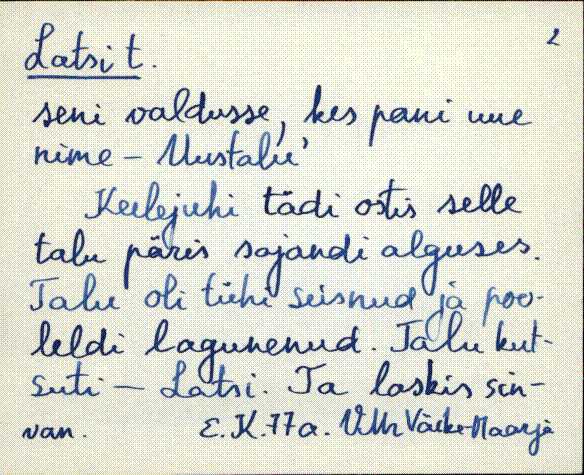 2
Latsi t.
seni valdusse, kes pani uue
nime – Uustalu'
Keelejuhi tädi ostis selle
talu päris sajandi alguses.
Talu oli tühi seisnud ja poo-
leldi lagunenud. Talu kut-
suti – Latsi. Ta laskis sin-
van. E.K.77a. Väike-Maarja